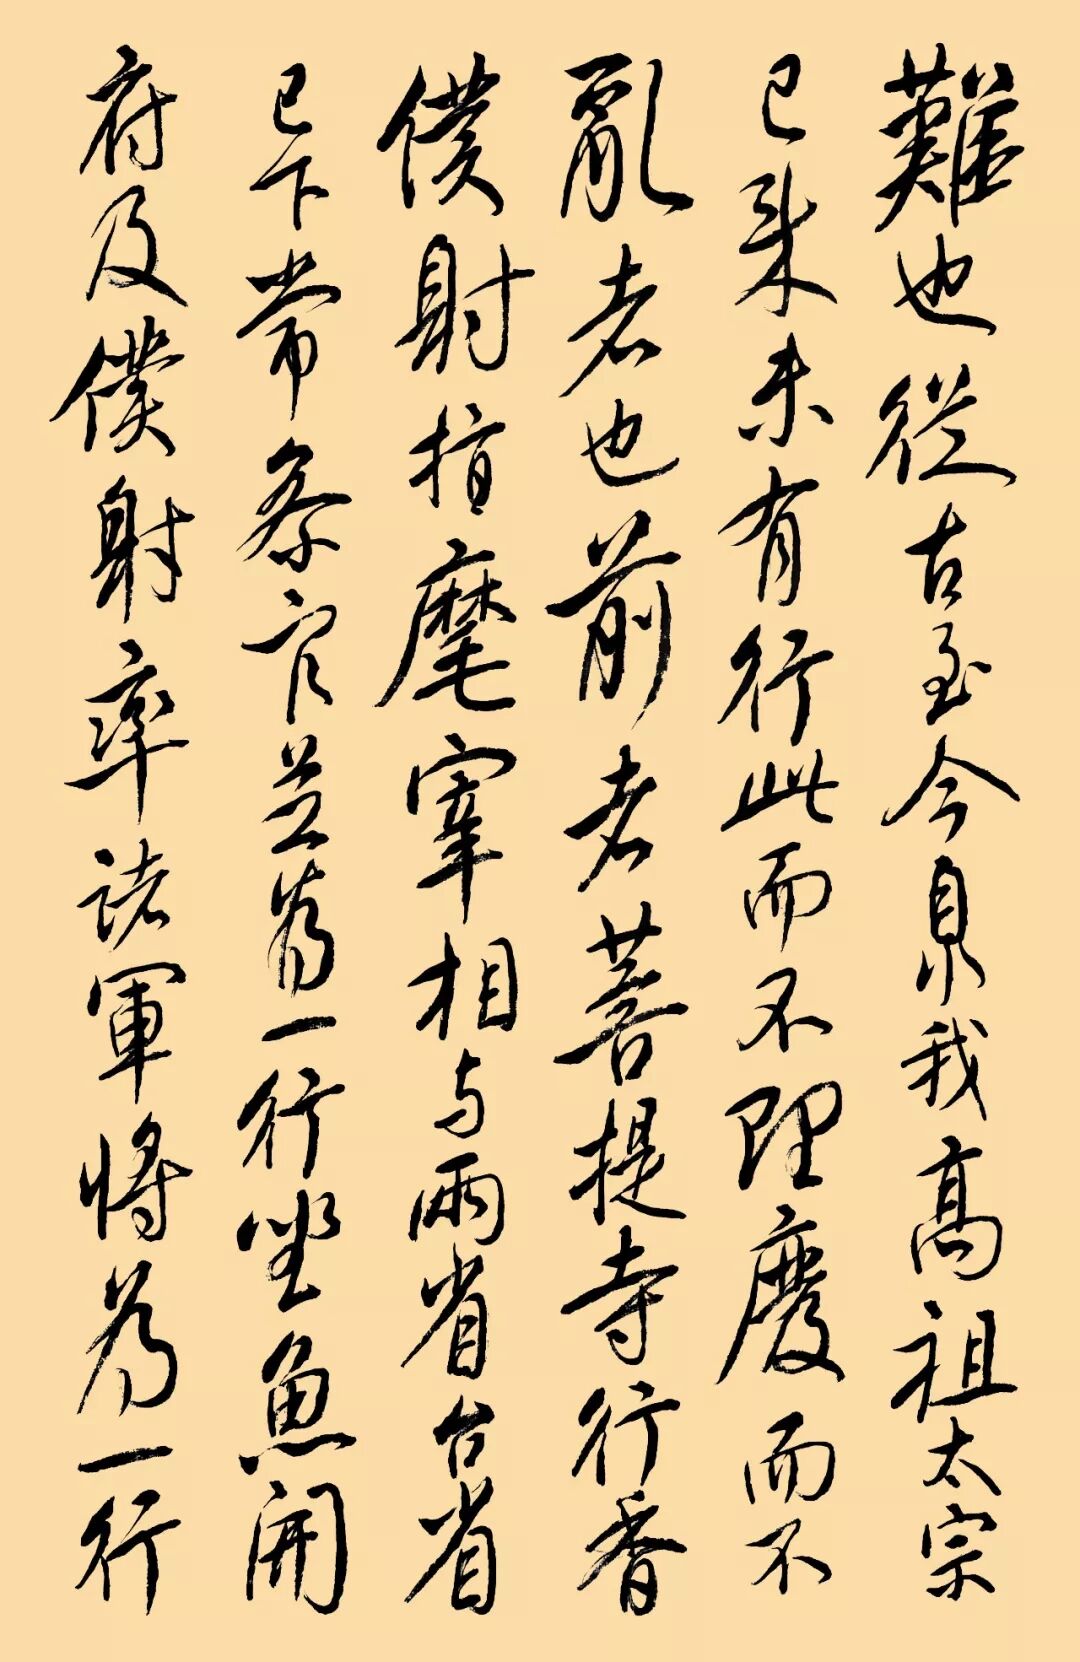 難也從古至今泉我高祖太宗
已来未有行此而不理廢而不
亂者也前者菩提寺行香
僕射指麾宰相与兩省台省
已下常参官並為一行坐魚開
府及僕射率諸軍将為一行